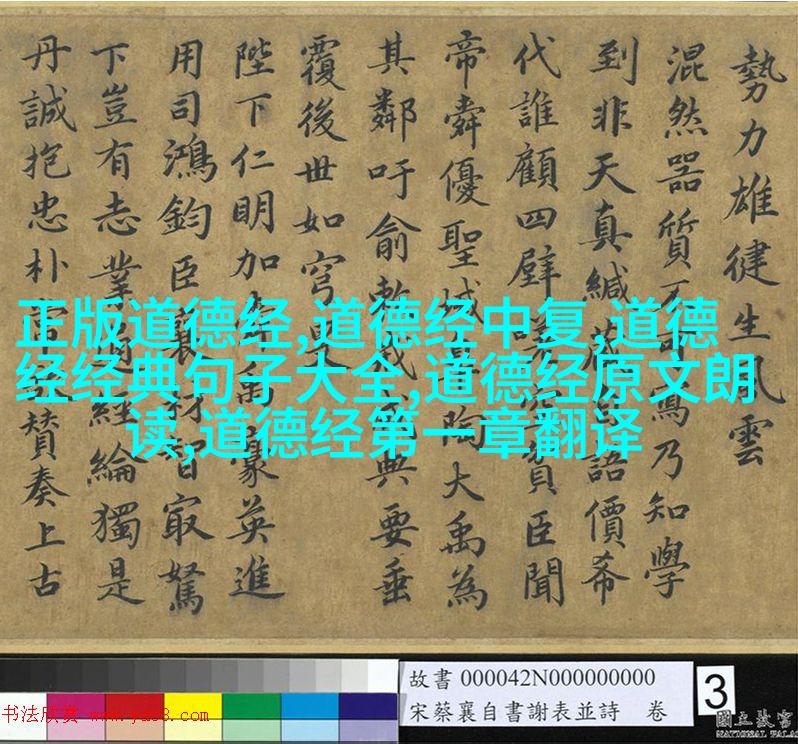 勢力雄健生風雲
混然器質不可寫乃知學
到非天真緘語價希
代誰顧四壁臣聞
帝舜優聖域陶大禹為
其鄰吁俞敕戒典要垂
覆後世如穹旻
陛下仁明加禹豪英進
用司鴻鈞臣襄材智最駑
下豈有志業經綸獨是
丹誠抱忠朴常贊奏上古
正版道德经,道德经中复,道德
经经典句子大全,道德经原文朗
读,道德经第一章翻译
故書 000042N000000000
宋蔡襄自書謝表並詩 卷
3
書法欣赏 www.yac8.com
國立故宮
NATIONAL PALA